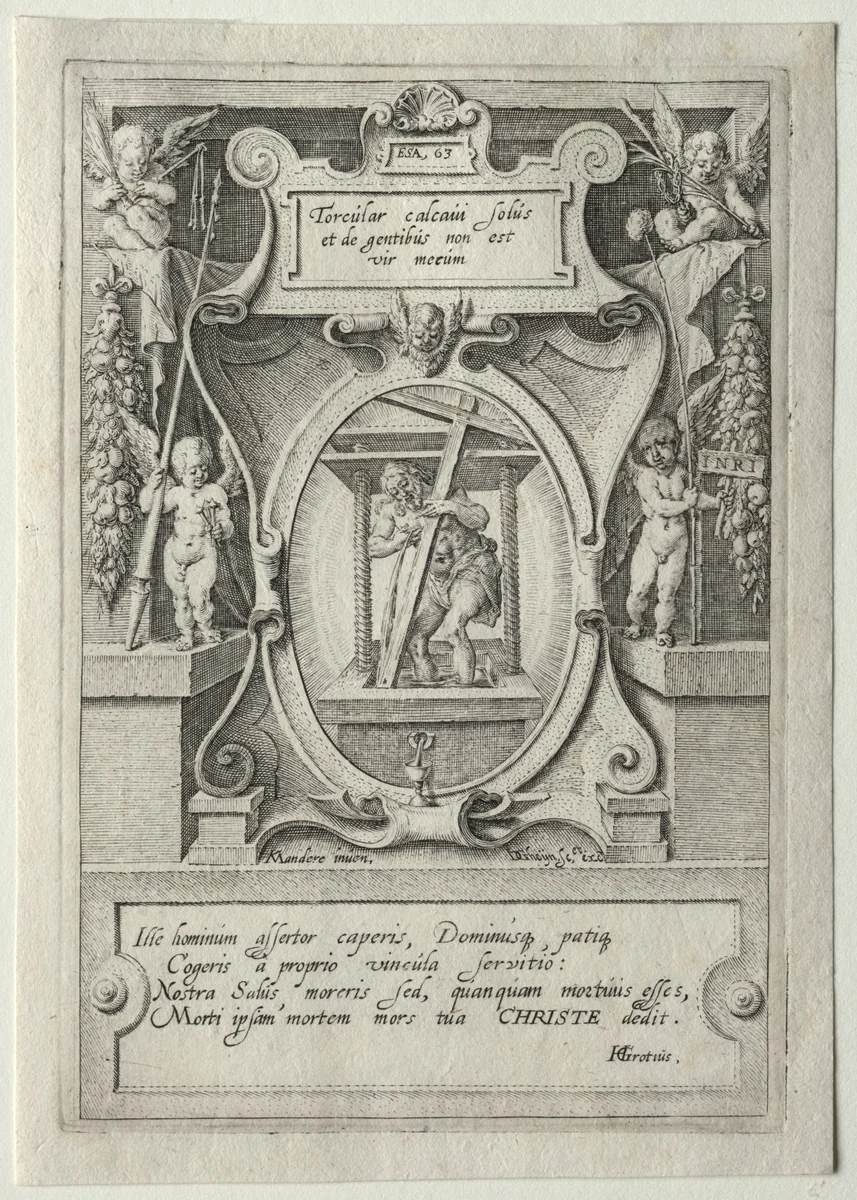 ESA, 63
Torcular calcaui solus
et de gentibus non est
vir mecum
INRI
KMandere inuen.
DGheijn.sc.et exc.
Ille hominum assertor caperis, Dominusq, patiq
Cogeris à proprio vincula servitio:
Nostra Salus moreris sed, quanquam mortuus esses,
Morti ipsam mortem mors tua CHRISTE dedit.
HGrotius,